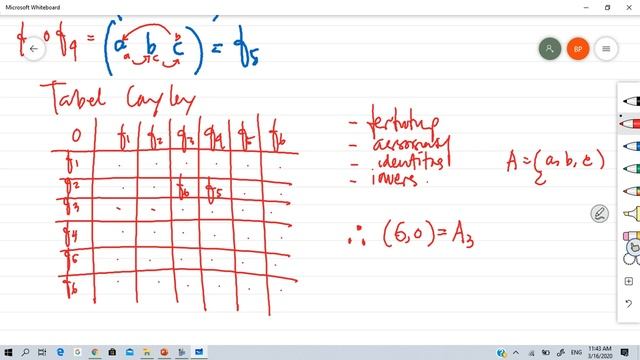 Microsoft Whiteboard
BP
= (a b c) = f5
a c b
Tabel Cayley
o f1 f2 f3 f4 f5 f6
f1 . . . . . .
f2 . . f6 f5 . .
f3 . . . . . .
f4 . . . . . .
f5 . . . . . .
f6 . . . . . .
- tertutup
- assosiatif
- identitas
- invers.
A = (a, b, c)
∴ (G, o) = A3
11:43 AM
ENG
3/16/2020